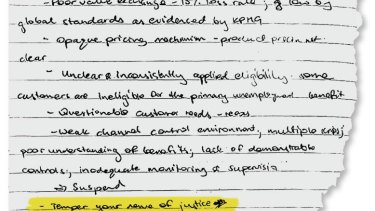 - Poor value exchange - 15% loss rate, low by
global standards as evidenced by KPMG
- Opaque pricing mechanism - product pricing not
clear
- Unclear & inconsistently applied eligibility. some
customers are ineligible for the primary unemployment benefit
- Questionable customer needs
- Weak channel control environment; multiple
poor understanding of benefits; lack of demonstrable
controls; inadequate monitoring & supervision
→ Suspend
- Temper your sense of justice